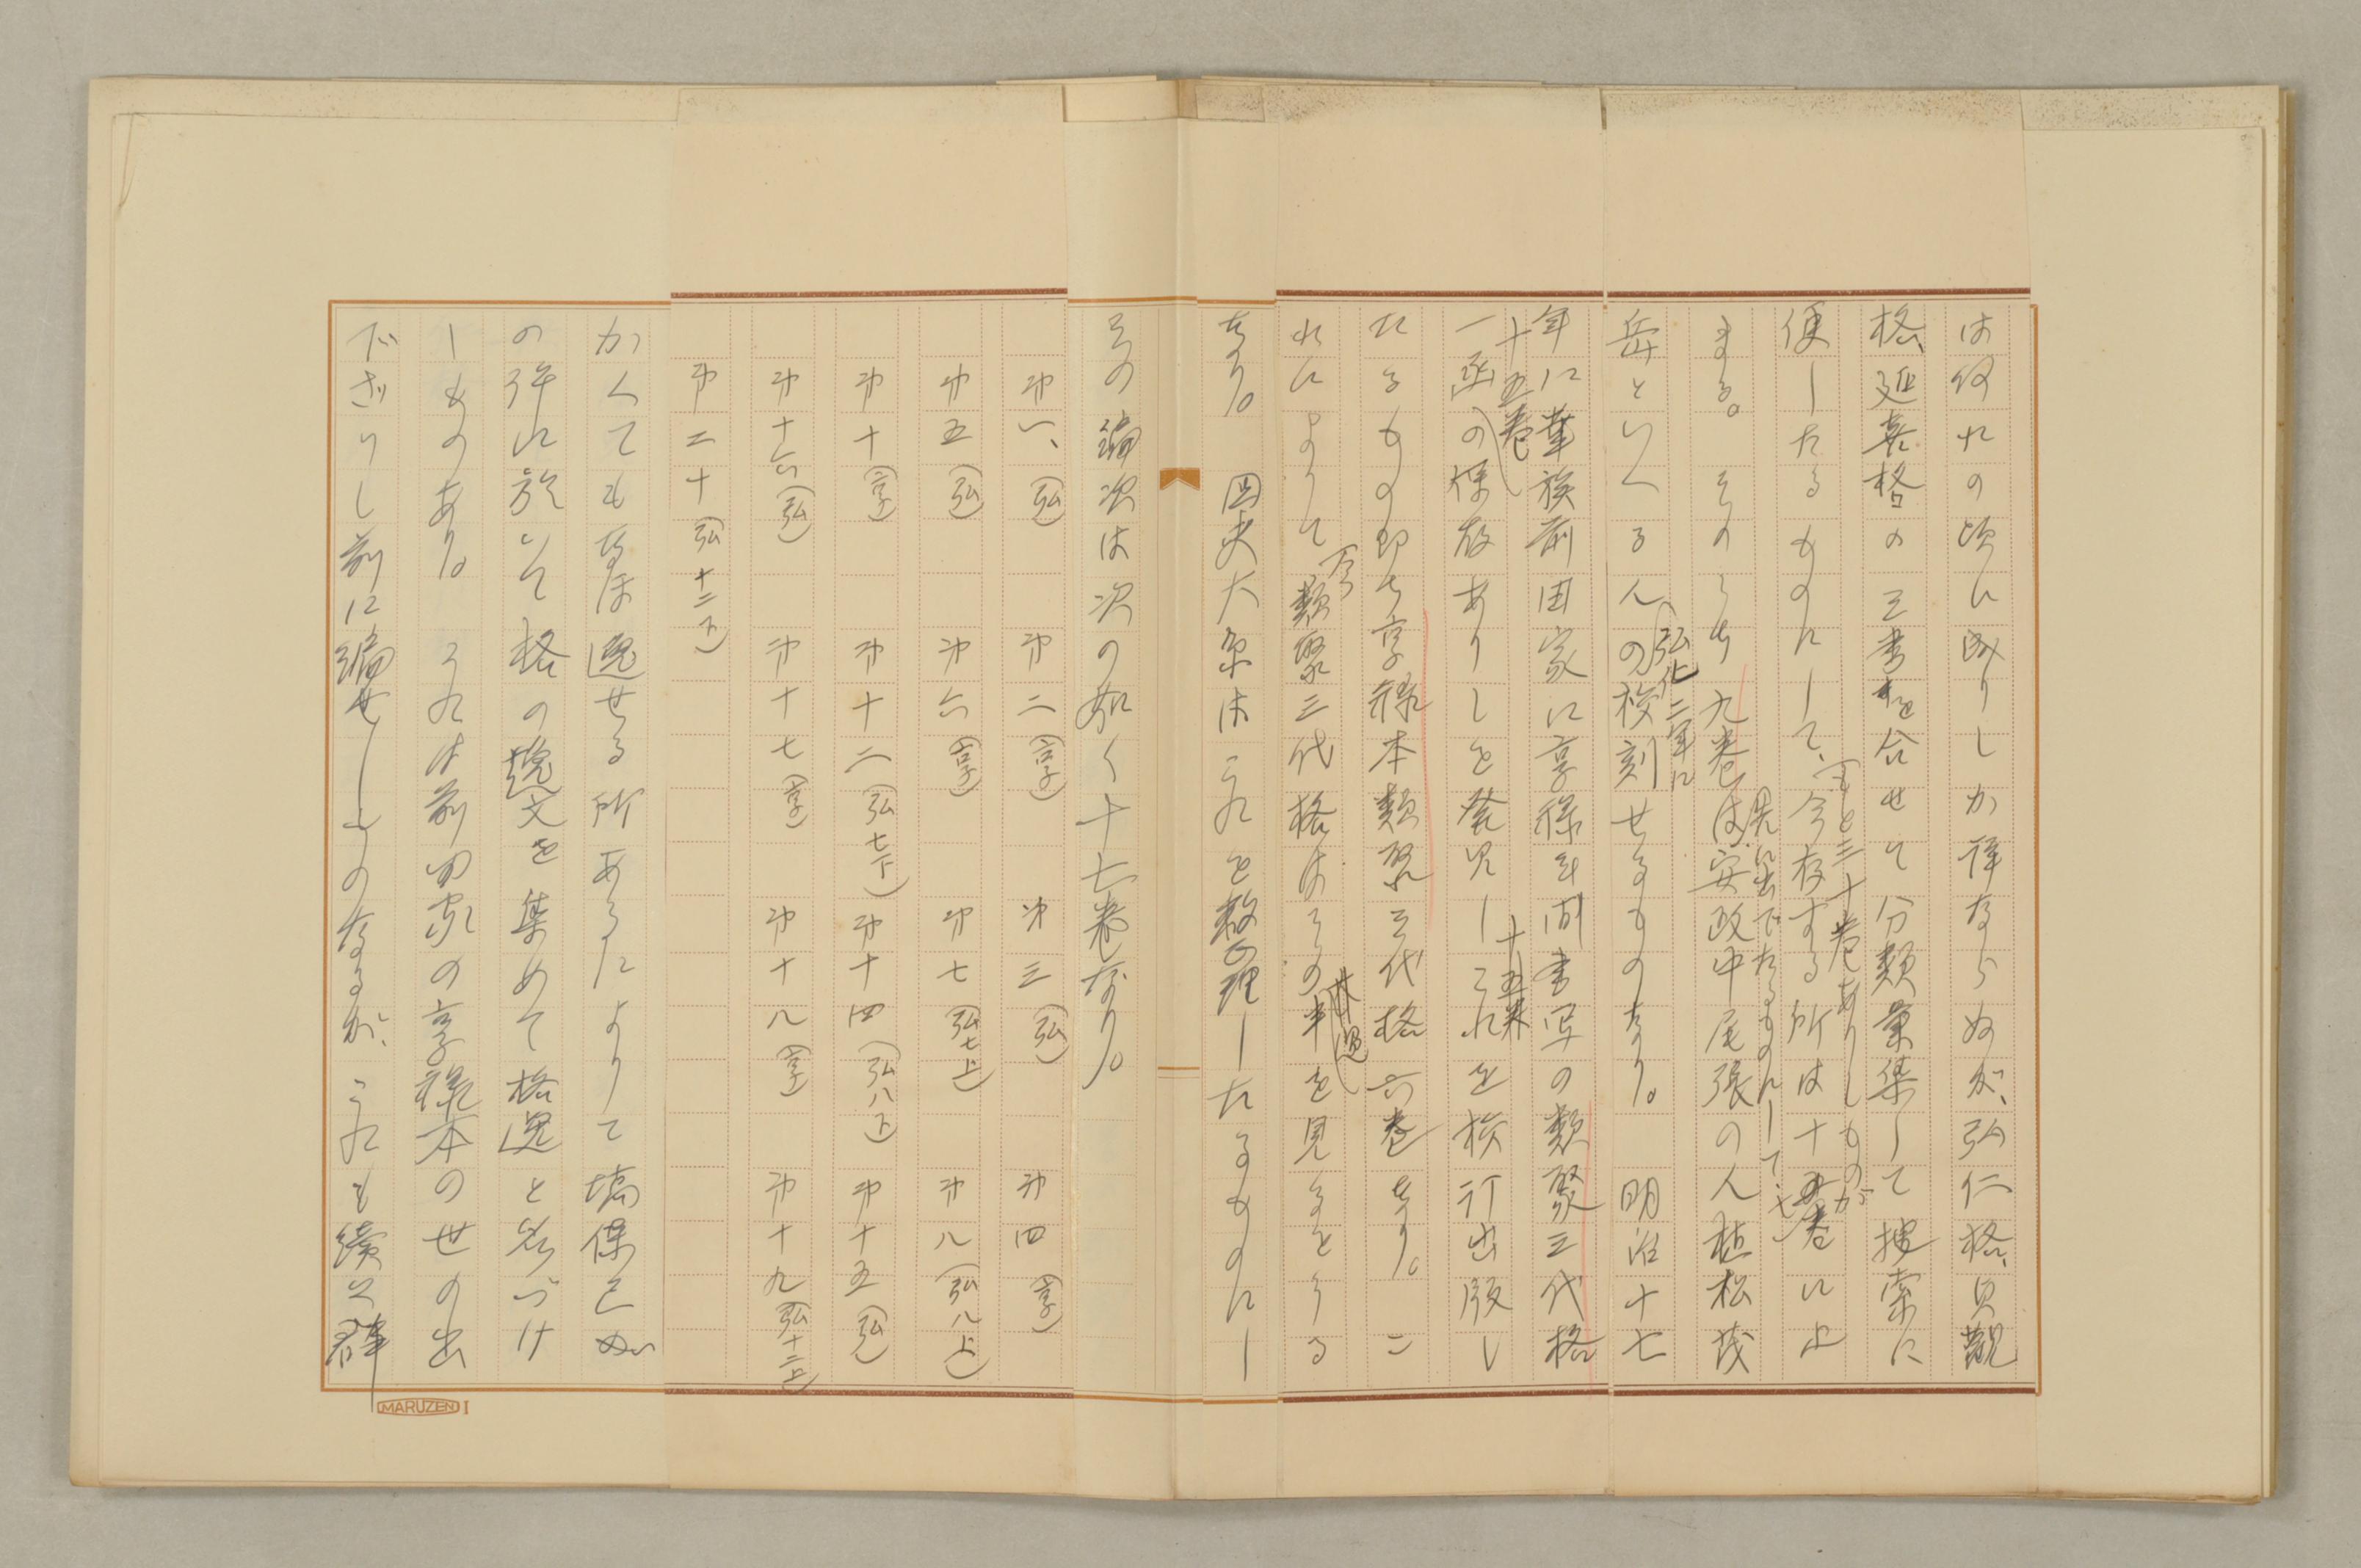 は何れの頃に成りしか詳ならぬが、弘仁格、貞観
格、延喜格の三書を合せて分類彙集して捜索に
便したるものにして、今存する所は十五巻に止
もと三十巻ありしものが
まる。そのうち九巻は安政中尾張の人植松茂
世に出でたるものにして、
岳といへる人の校刻せるものなり。明治十七
弘化二年に
年に華族前田家に享保年間書写の類聚三代格
一函の保存ありしを発見しこれを校訂出版し
十五巻
たるもの即ち享禄本類聚三代格六巻なり。こ
れによりて類聚三代格はその半を見るをうる
今
なり。国史大系はこれを整理したるものにし
その編次は次の如く十七巻なり。
第一、(弘) 第二(享) 第三(弘) 第四(享)
第五(弘) 第六(享) 第七(弘七上) 第八(弘八上)
第十(享) 第十二(弘七下) 第十四(弘八下) 第十五(弘)
第十六(弘) 第十七(享) 第十八(享) 第十九(弘十二上)
第二十(弘十二下)
かくてもなほ逸せる所あるによりて塙保己
の許に於いて格の逸文を集めて格逸と名づけ
しものあり。これは前田家の享禄本の世の出
でざりし前に編せしものなるが、これも續々群
MARUZEN I